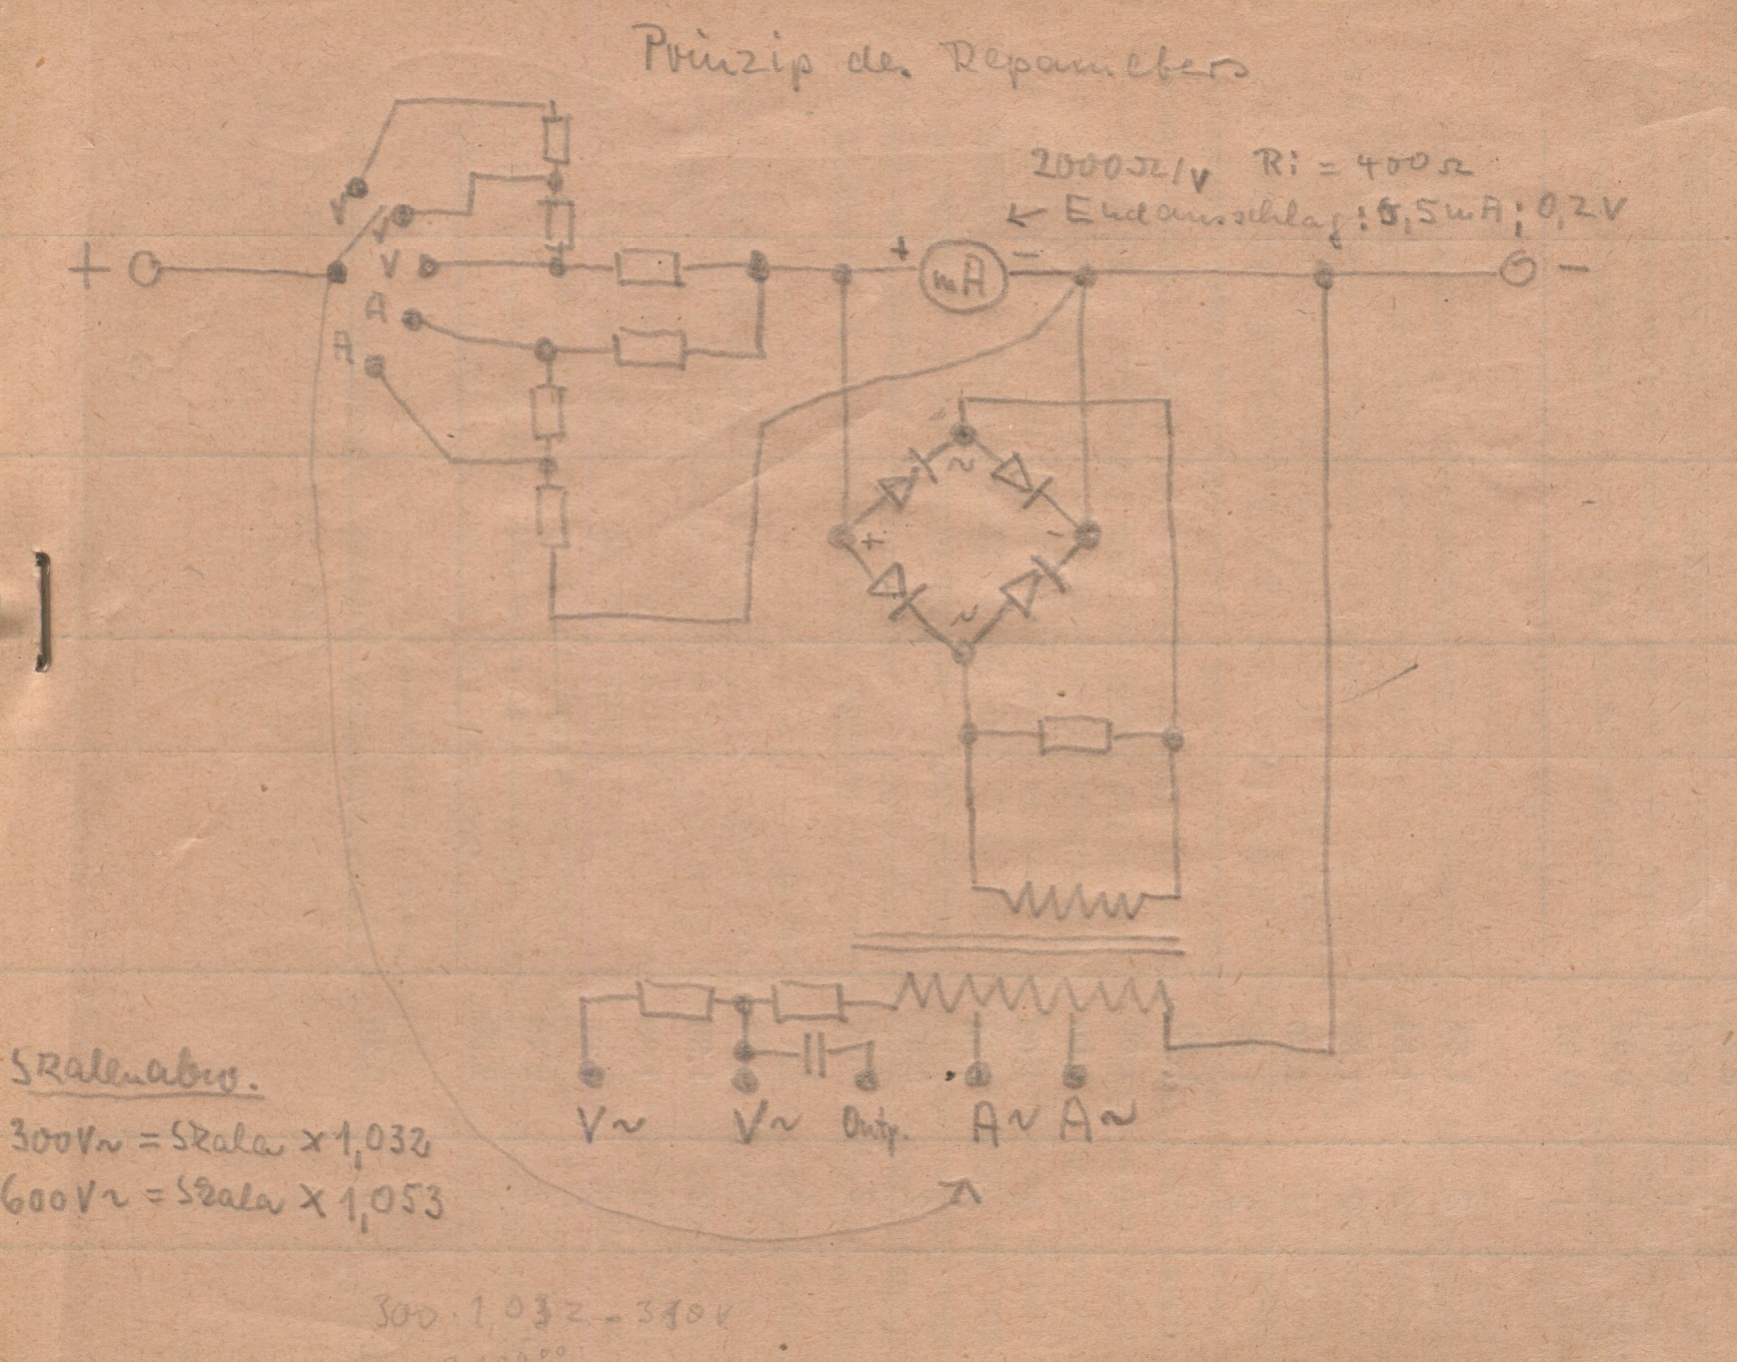 Prinzip des Repameters
2000Ω/V Ri = 400Ω
← Endausschlag: 0,5mA; 0,2V
V
V
+ V + mA − −
A
A
~
+ −
~
Skalenabw.
300V~ = Skala × 1,032
600V~ = Skala × 1,053
V~ V~ Outp. A~ A~
300 · 1,032 = 310V